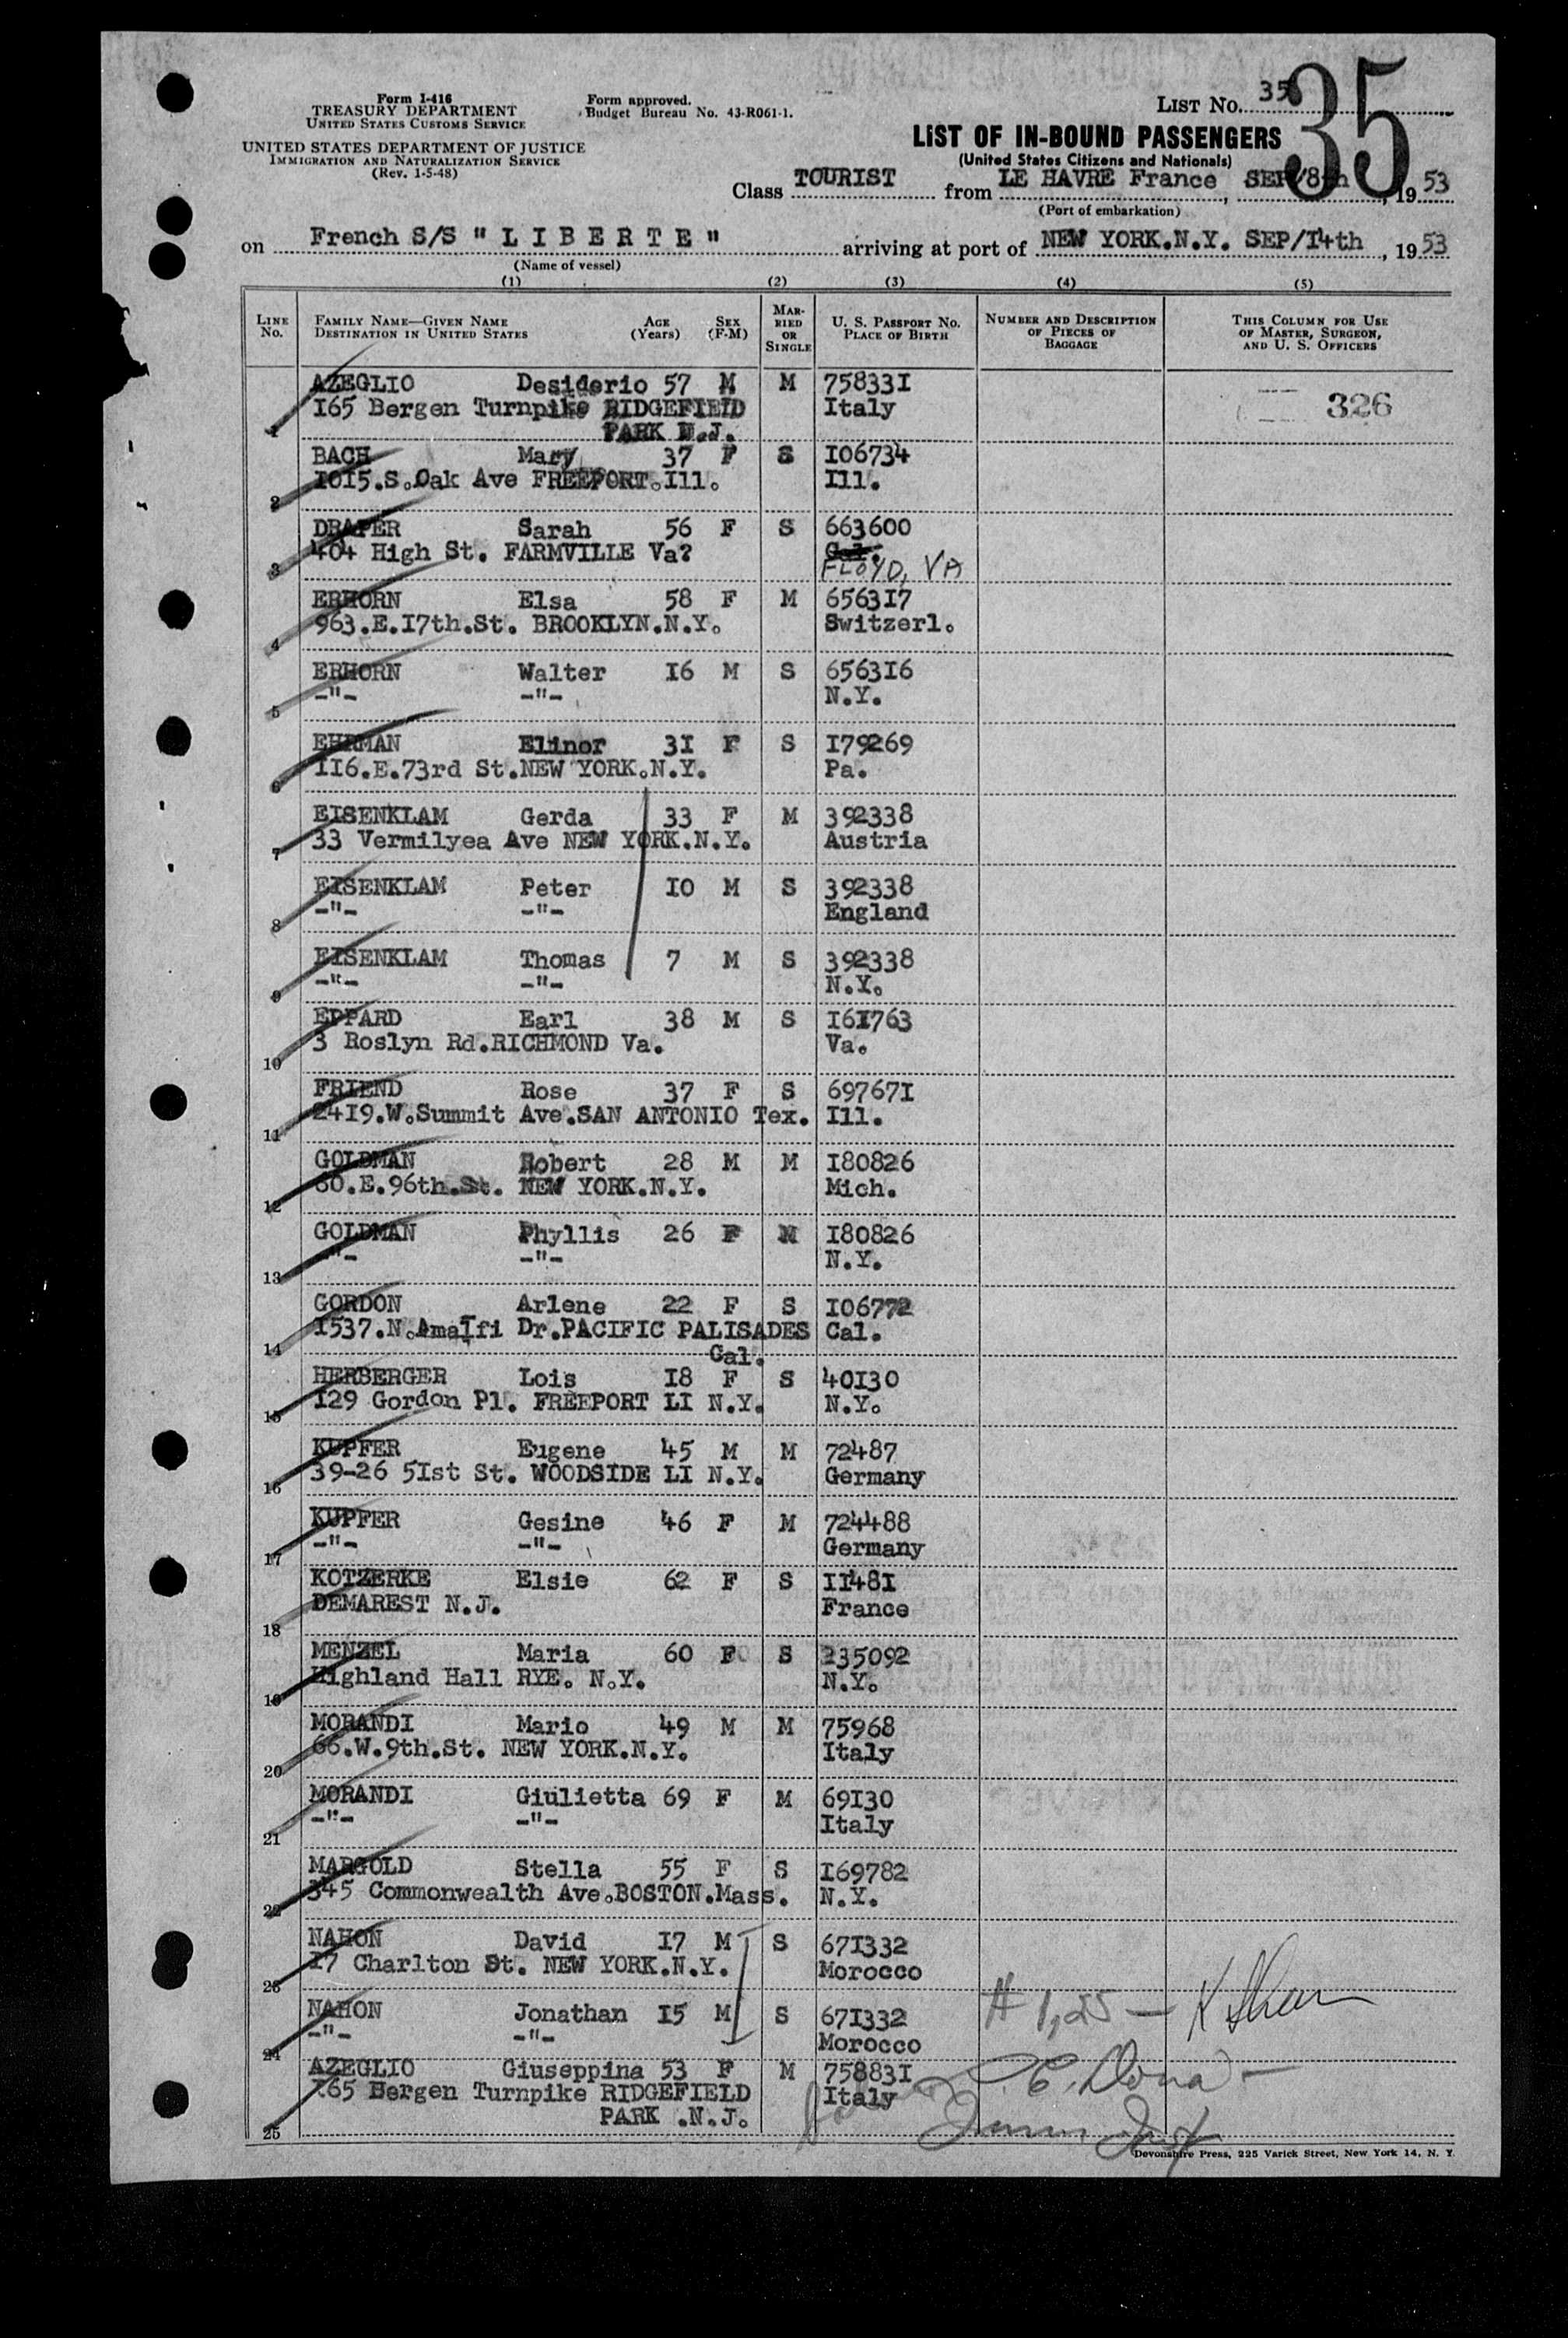 Form I-416
TREASURY DEPARTMENT
UNITED STATES CUSTOMS SERVICE
UNITED STATES DEPARTMENT OF JUSTICE
IMMIGRATION AND NATURALIZATION SERVICE
(Rev. 1-5-48)
Form approved.
Budget Bureau No. 43-R061-1.
LIST No. 35
35
LIST OF IN-BOUND PASSENGERS
(United States Citizens and Nationals)
Class TOURIST from LE HAVRE France, SEP/8th, 1953
(Port of embarkation)
on French S/S " L I B E R T E " arriving at port of NEW YORK.N.Y. SEP/I4th, 1953
(Name of vessel)
(1) (2) (3) (4) (5)
LINE No. FAMILY NAME—GIVEN NAME DESTINATION IN UNITED STATES AGE (Years) SEX (F-M) MARRIED OR SINGLE U. S. PASSPORT No. PLACE OF BIRTH NUMBER AND DESCRIPTION OF PIECES OF BAGGAGE THIS COLUMN FOR USE OF MASTER, SURGEON, AND U. S. OFFICERS
AZEGLIO Desiderio 57 M M 75833I 326
I65 Bergen Turnpike RIDGEFIELD Italy
1 PARK N.J.
BACH Mary 37 F S I06734
I0I5.S.Oak Ave FREEPORT.Ill. Ill.
2
DRAPER Sarah 56 F S 663600
404 High St. FARMVILLE Va? Cal.
3 FLOYD, VA
ERHORN Elsa 58 F M 6563I7
963.E.I7th.St. BROOKLYN.N.Y. Switzerl.
4
ERHORN Walter I6 M S 6563I6
-"- -"- N.Y.
5
EHRMAN Elinor 3I F S I79269
II6.E.73rd St.NEW YORK.N.Y. Pa.
6
EISENKLAM Gerda 33 F M 392338
33 Vermilyea Ave NEW YORK.N.Y. Austria
7
EISENKLAM Peter I0 M S 392338
-"- -"- England
8
EISENKLAM Thomas 7 M S 392338
-"- -"- N.Y.
9
EPPARD Earl 38 M S I6I763
3 Roslyn Rd.RICHMOND Va. Va.
10
FRIEND Rose 37 F S 69767I
24I9.W.Summit Ave.SAN ANTONIO Tex. Ill.
11
GOLDMAN Robert 28 M M I80826
60.E.96th.St. NEW YORK.N.Y. Mich.
12
GOLDMAN Phyllis 26 F M I80826
-"- -"- N.Y.
13
GORDON Arlene 22 F S I06772
I537.N.Amalfi Dr.PACIFIC PALISADES Cal.
14 Cal.
HERBERGER Lois I8 F S 40I30
I29 Gordon Pl. FREEPORT LI N.Y. N.Y.
15
KUPFER Eugene 45 M M 72487
39-26 5Ist St. WOODSIDE LI N.Y. Germany
16
KUPFER Gesine 46 F M 724488
-"- -"- Germany
17
KOTZERKE Elsie 62 F S II48I
DEMAREST N.J. France
18
MENZEL Maria 60 F S 235092
Highland Hall RYE. N.Y. N.Y.
19
MORANDI Mario 49 M M 75968
66.W.9th.St. NEW YORK.N.Y. Italy
20
MORANDI Giulietta 69 F M 69I30
-"- -"- Italy
21
MARGOLD Stella 55 F S I69782
345 Commonwealth Ave.BOSTON.Mass. N.Y.
22
NAHON David I7 M S 67I332
I7 Charlton St. NEW YORK.N.Y. Morocco
23
NAHON Jonathan I5 M S 67I332
-"- -"- Morocco
24 # 1,25 —
AZEGLIO Giuseppina 53 F M 75883I
I65 Bergen Turnpike RIDGEFIELD Italy
PARK .N.J.
25
Devonshire Press, 225 Varick Street, New York 14, N. Y.